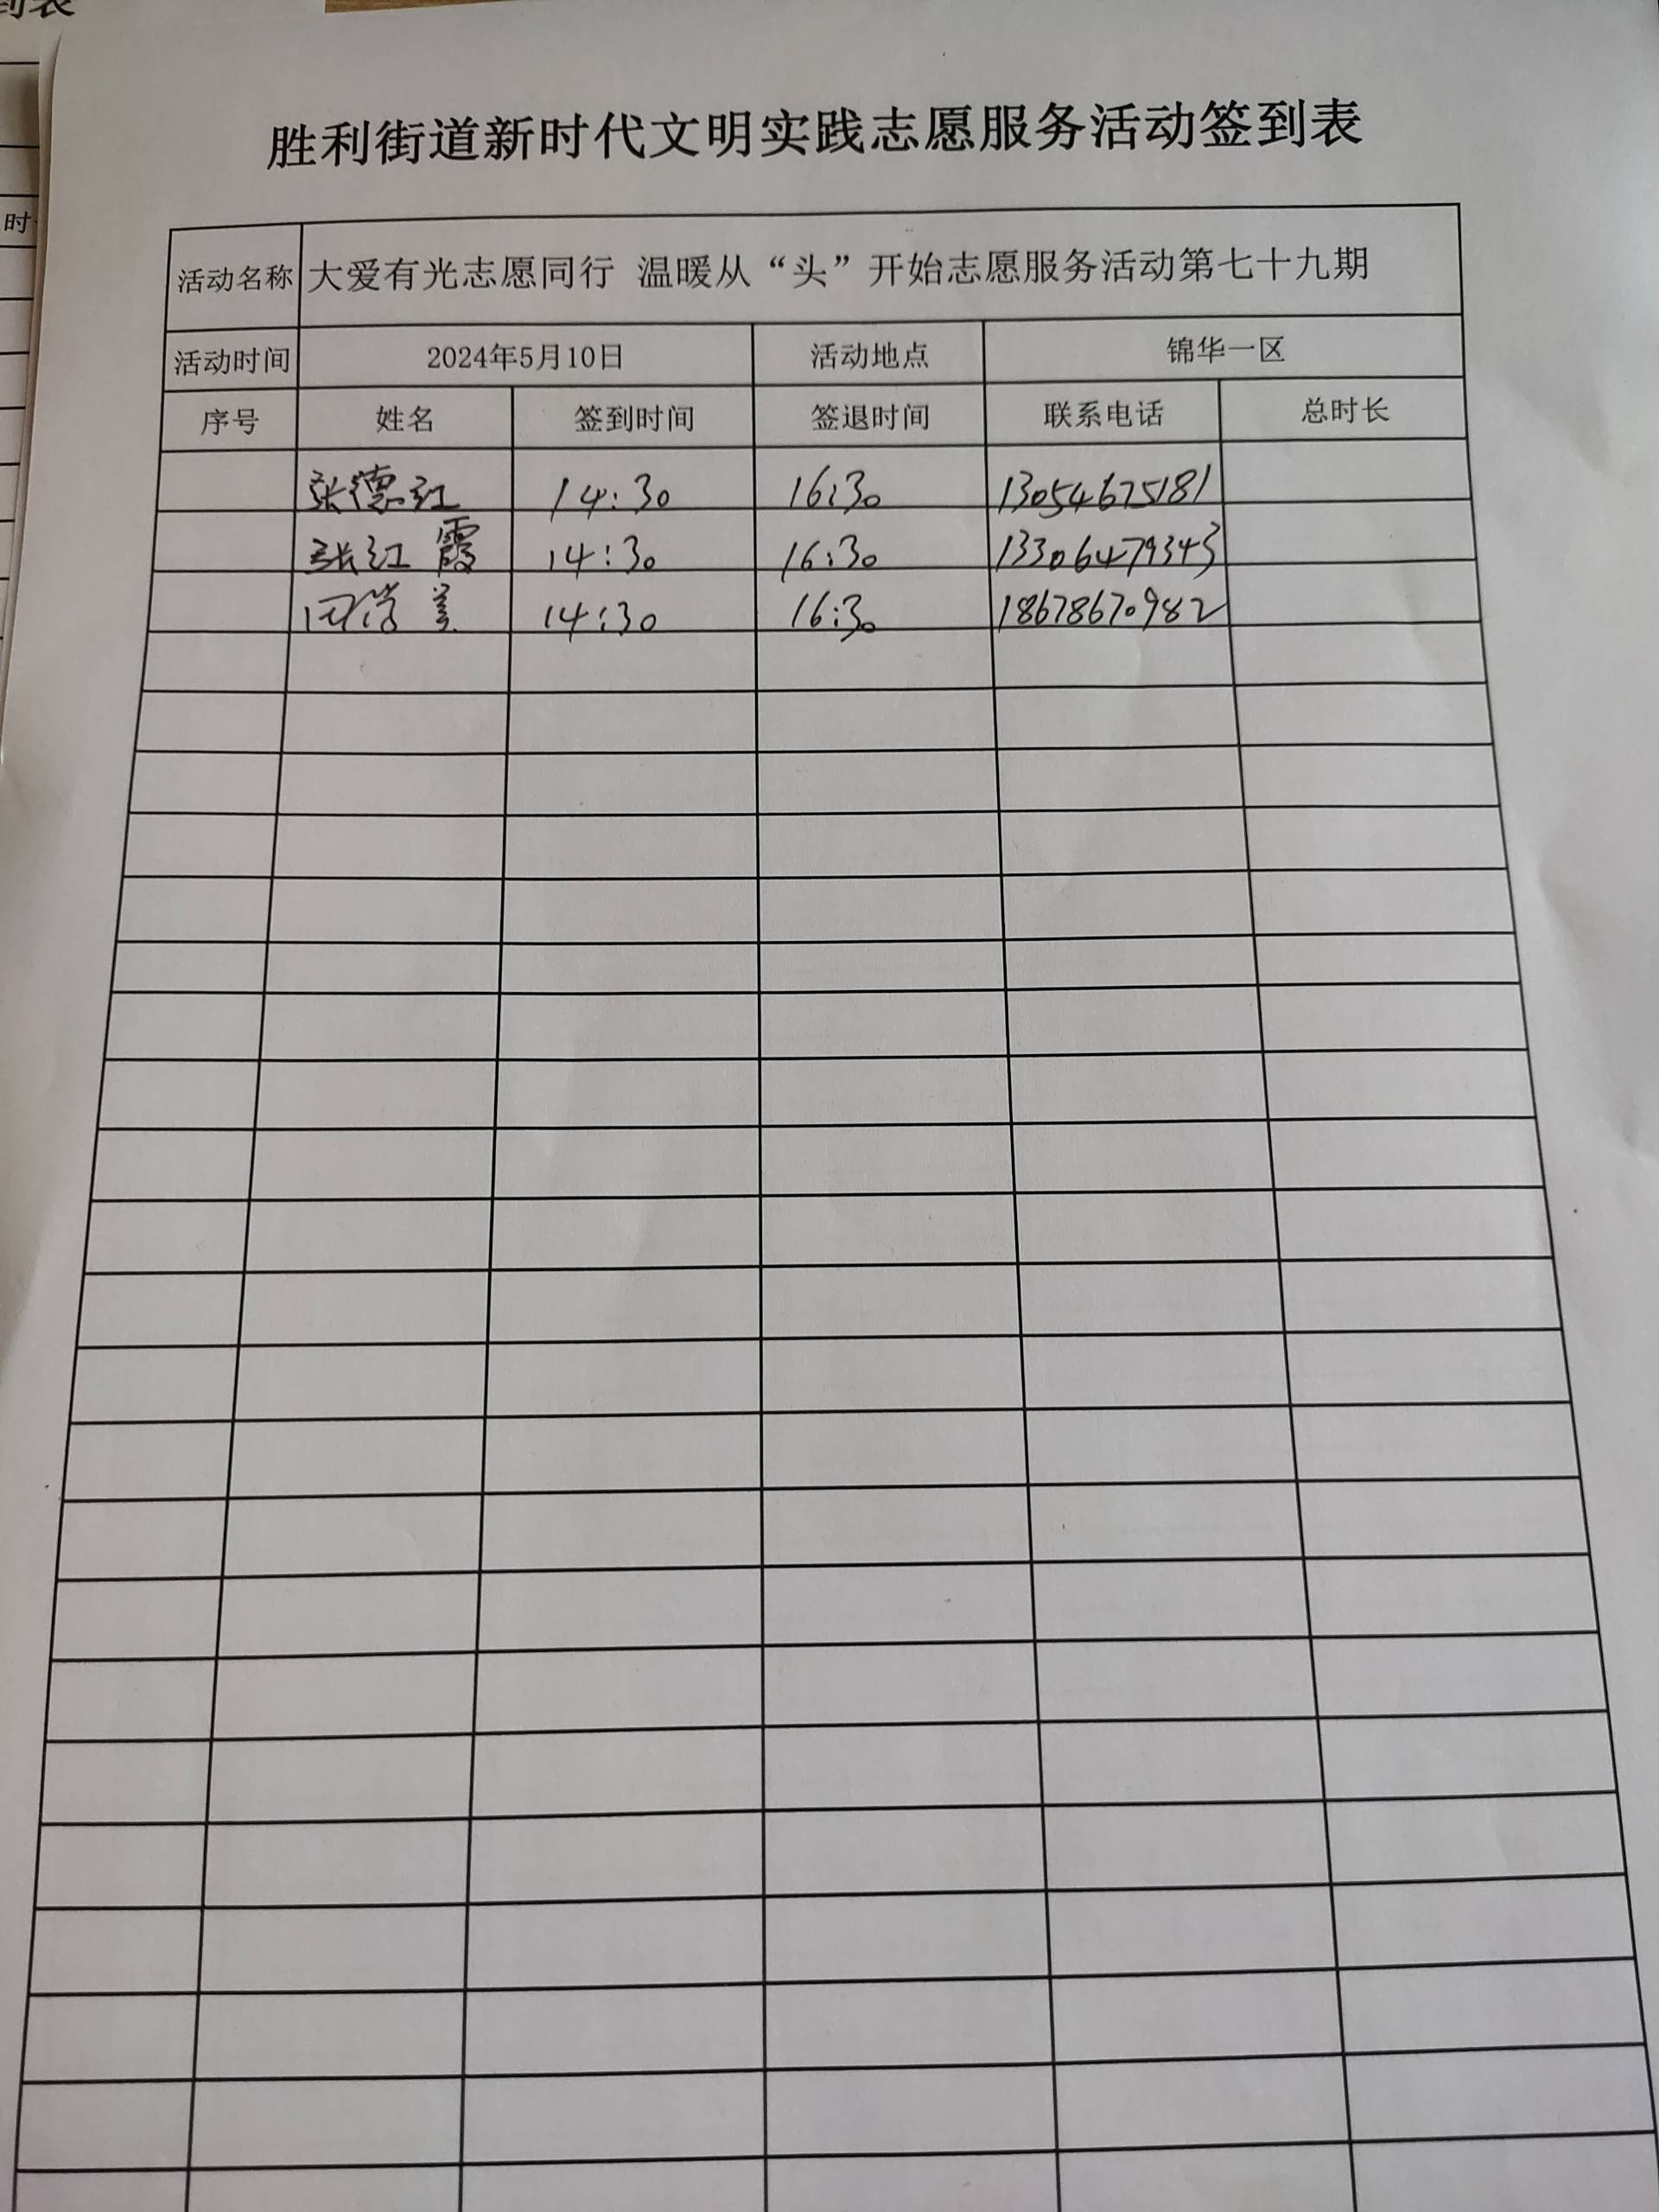 到表
时
胜利街道新时代文明实践志愿服务活动签到表
活动名称 大爱有光志愿同行 温暖从“头”开始志愿服务活动第七十九期
活动时间 2024年5月10日 活动地点 锦华一区
序号 姓名 签到时间 签退时间 联系电话 总时长
张德红 14:30 16:30 13054675181
张红霞 14:30 16:30 13306479343
田学美 14:30 16:30 18678670982